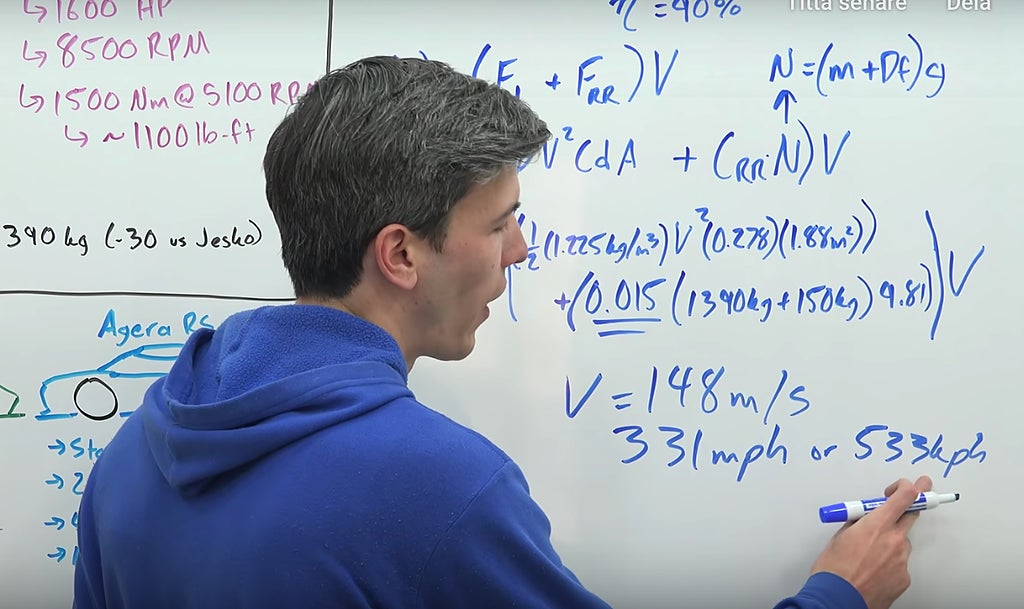 ↳1600 HP
↳8500 RPM
↳1500 Nm@5100 RPM
↳~1100 lb-ft
390 kg (-30 vs Jesko)
Agera RS
→Sta
→2
→
→
η=40%
Titta senare Dela
(F + F_RR)V
N=(m+Df)g
↑
V²CdA + (C_RR·N)V
(½(1.225kg/m³)V²(0.278)(1.88m²))
+(0.015(1390kg+150kg)9.81))V
V=148m/s
331mph or 533kph